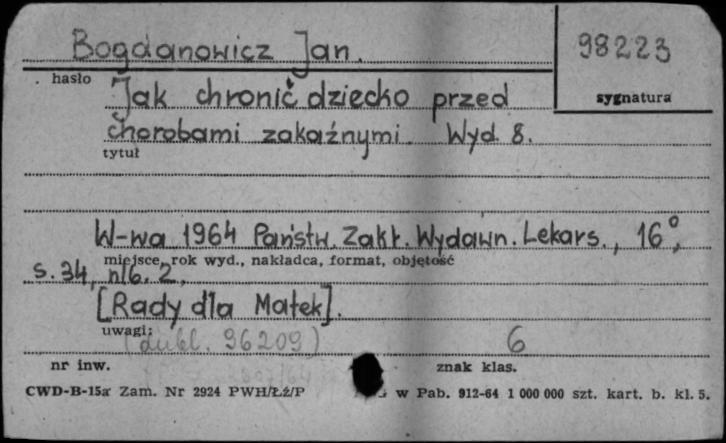 Bogdanowicz Jan.
98223
hasło
sygnatura
Jak chronić dziecko przed
chorobami zakaźnymi. Wyd. 8.
tytuł
W-wa 1964 Państw. Zakł. Wydawn. Lekars., 16°,
miejsce, rok wyd., nakładca, format, objętość
s. 34, nlb. 2,
[Rady dla Matek].
uwagi:
(dubl. 96209)
6
nr inw.
znak klas.
CWD-B-15a Zam. Nr 2924 PWH/Łź/P
w Pab. 912-64 1 000 000 szt. kart. b. kl. 5.